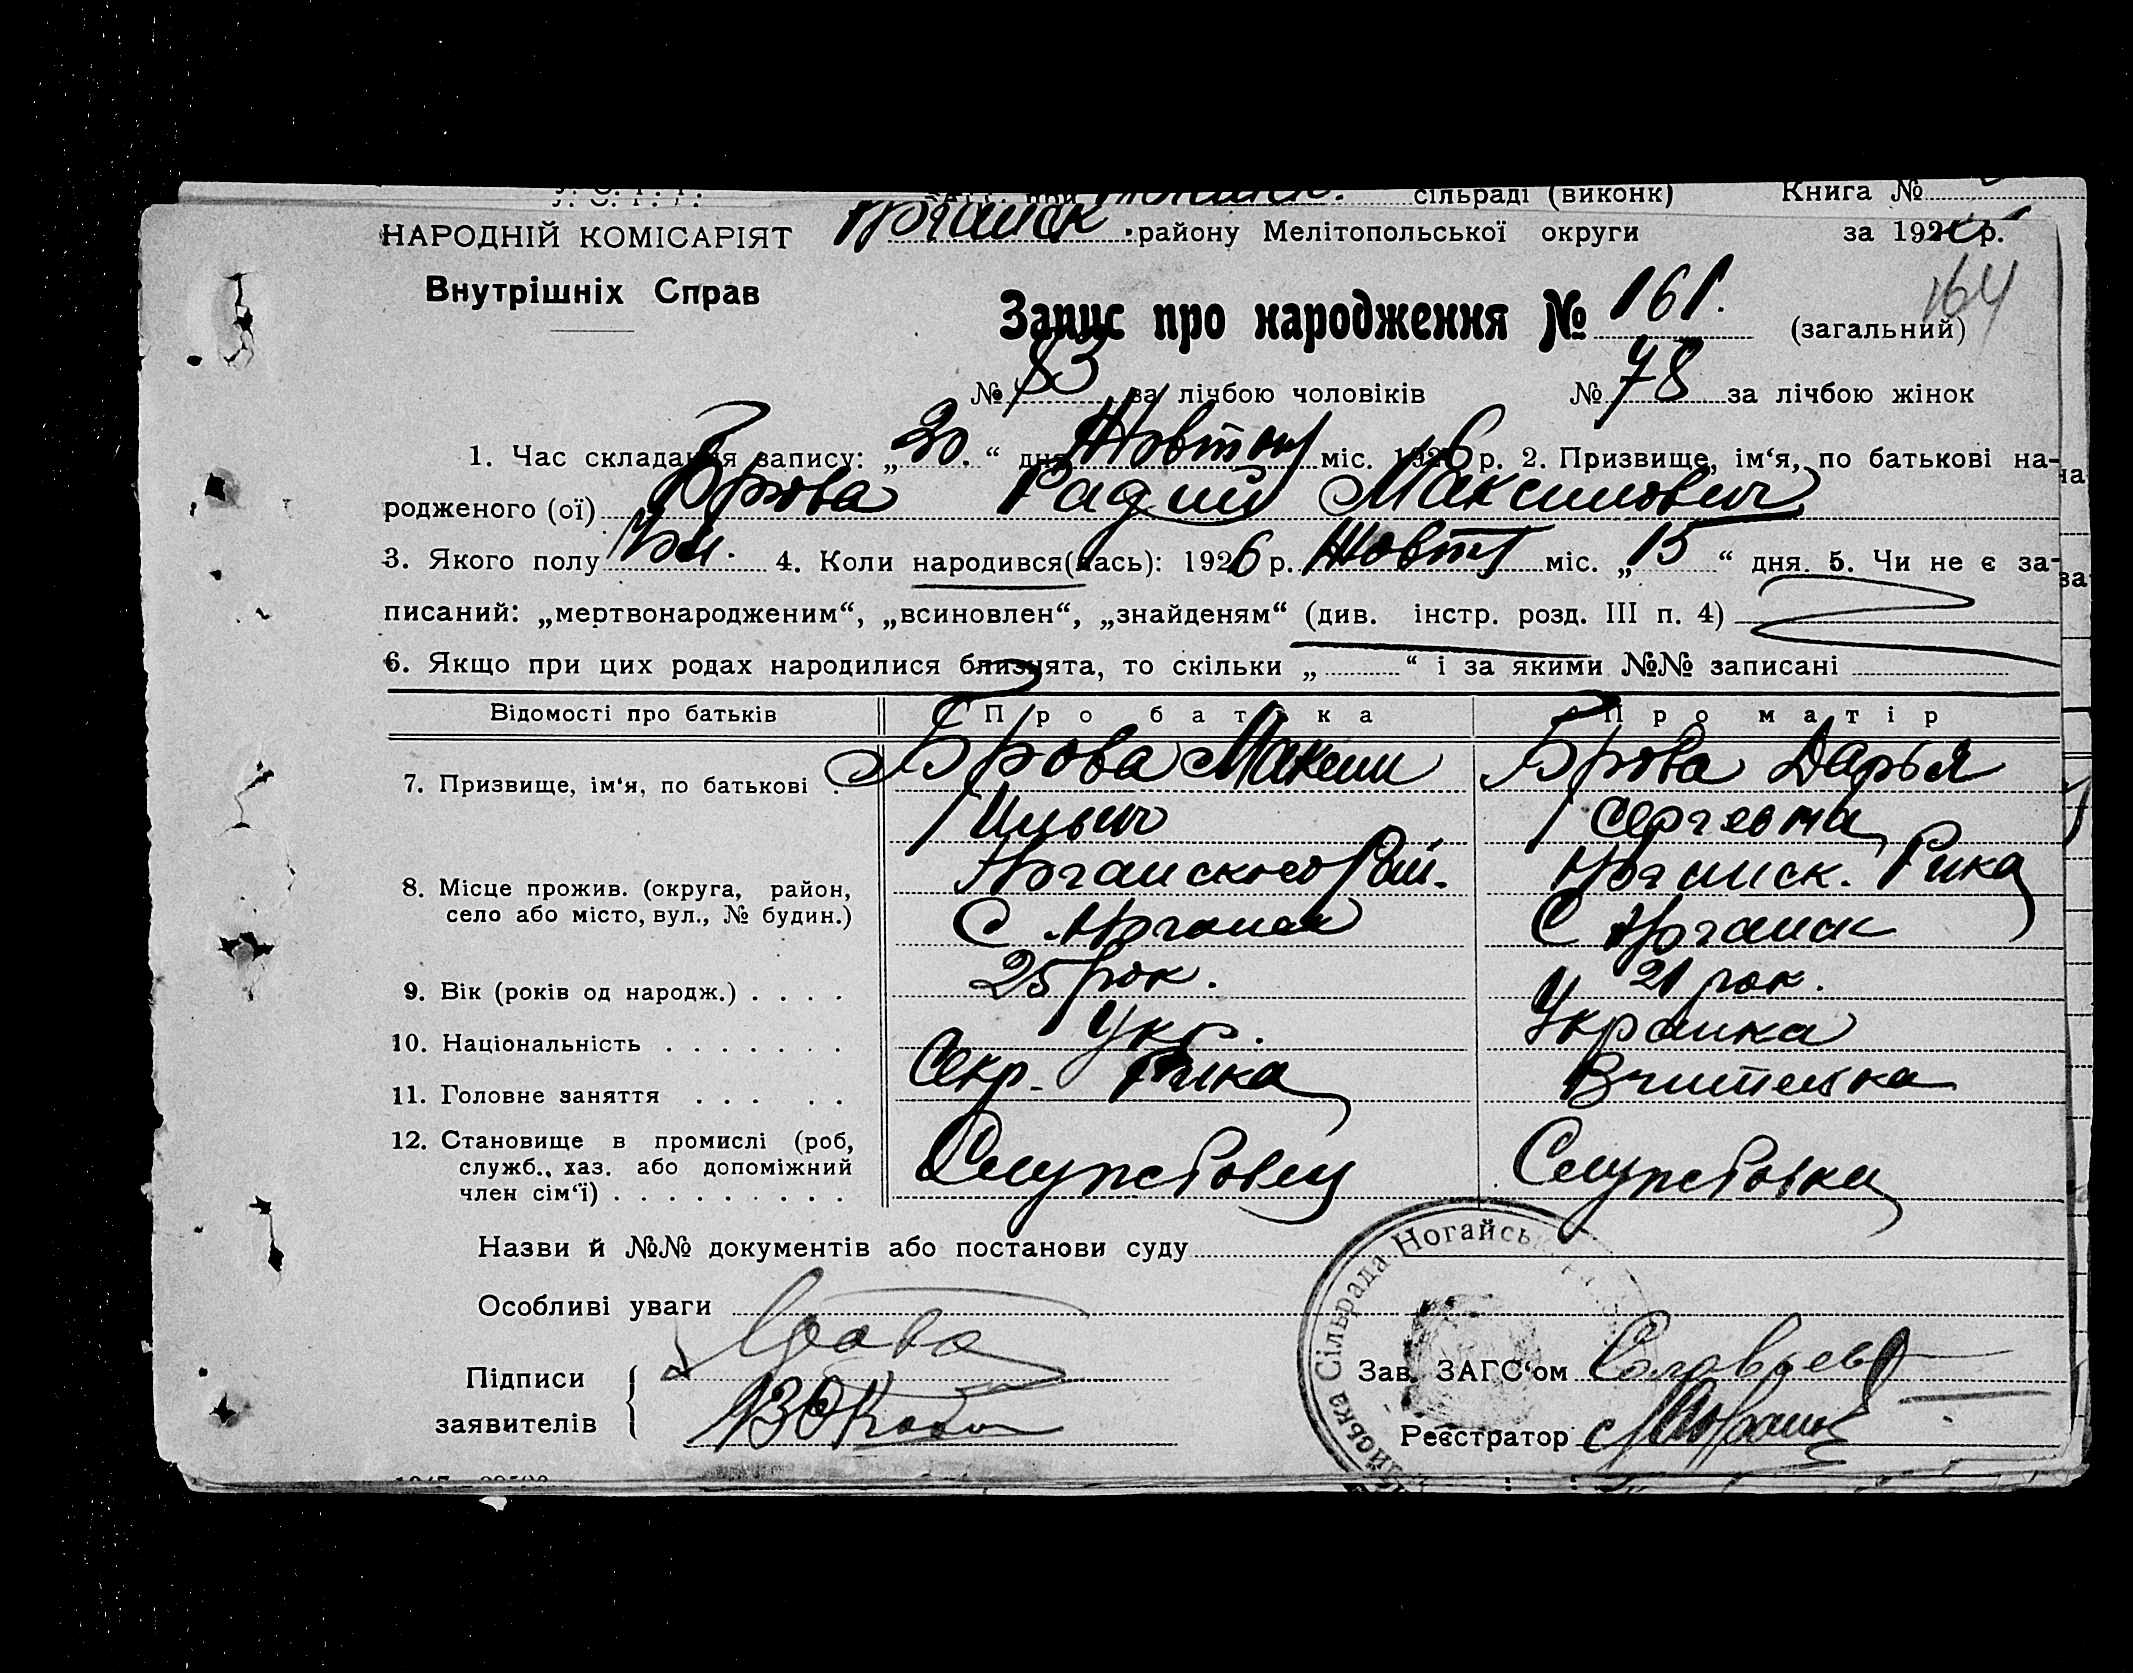 сільраді (виконк) Книга №
НАРОДНІЙ КОМІСАРІЯТ Ногайск району Мелітопольської округи за 1926 р.
Внутрішніх Справ
164
Запис про народження № 161. (загальний)
№ 83 за лічбою чоловіків № 78 за лічбою жінок
1. Час складання запису: „20.“ дня Жовтня міс. 1926 р. 2. Призвище, ім‘я, по батькові на-
родженого (ої) Брова Радий Максимович
3. Якого полу Чол. 4. Коли народився(лась): 1926 р. Жовтн міс. „15“ дня. 5. Чи не є за-
писаний: „мертвонародженим“, „всиновлен“, „знайденям“ (див. інстр. розд. III п. 4)
6. Якщо при цих родах народилися близнята, то скільки „ “ і за якими №№ записані
Відомості про батьків Про батька Про матір
7. Призвище, ім‘я, по батькові . Брова Максим Брова Дарья
Ильич Сергеевна
8. Місце прожив. (округа, район, Ногайского Рай. Ногайск. Рика
село або місто, вул., № будин.) С. Ногайск С Ногайск
9. Вік (років од народж.) . . . . 25 рок. 21 рок.
10. Національність . . . . . . . Укр. Украинка
11. Головне заняття . . . . . Секр. Рика Вчителька
12. Становище в промислі (роб,
служб., хаз. або допоміжний Служебовец Служебовка
член сім‘ї) . . . . . . . . .
Назви й №№ документів або постанови суду
Особливі уваги
Підписи Брова
заявителів
Зав. ЗАГС‘ом Соловьев
Реєстратор
Сільрада Ногайськ